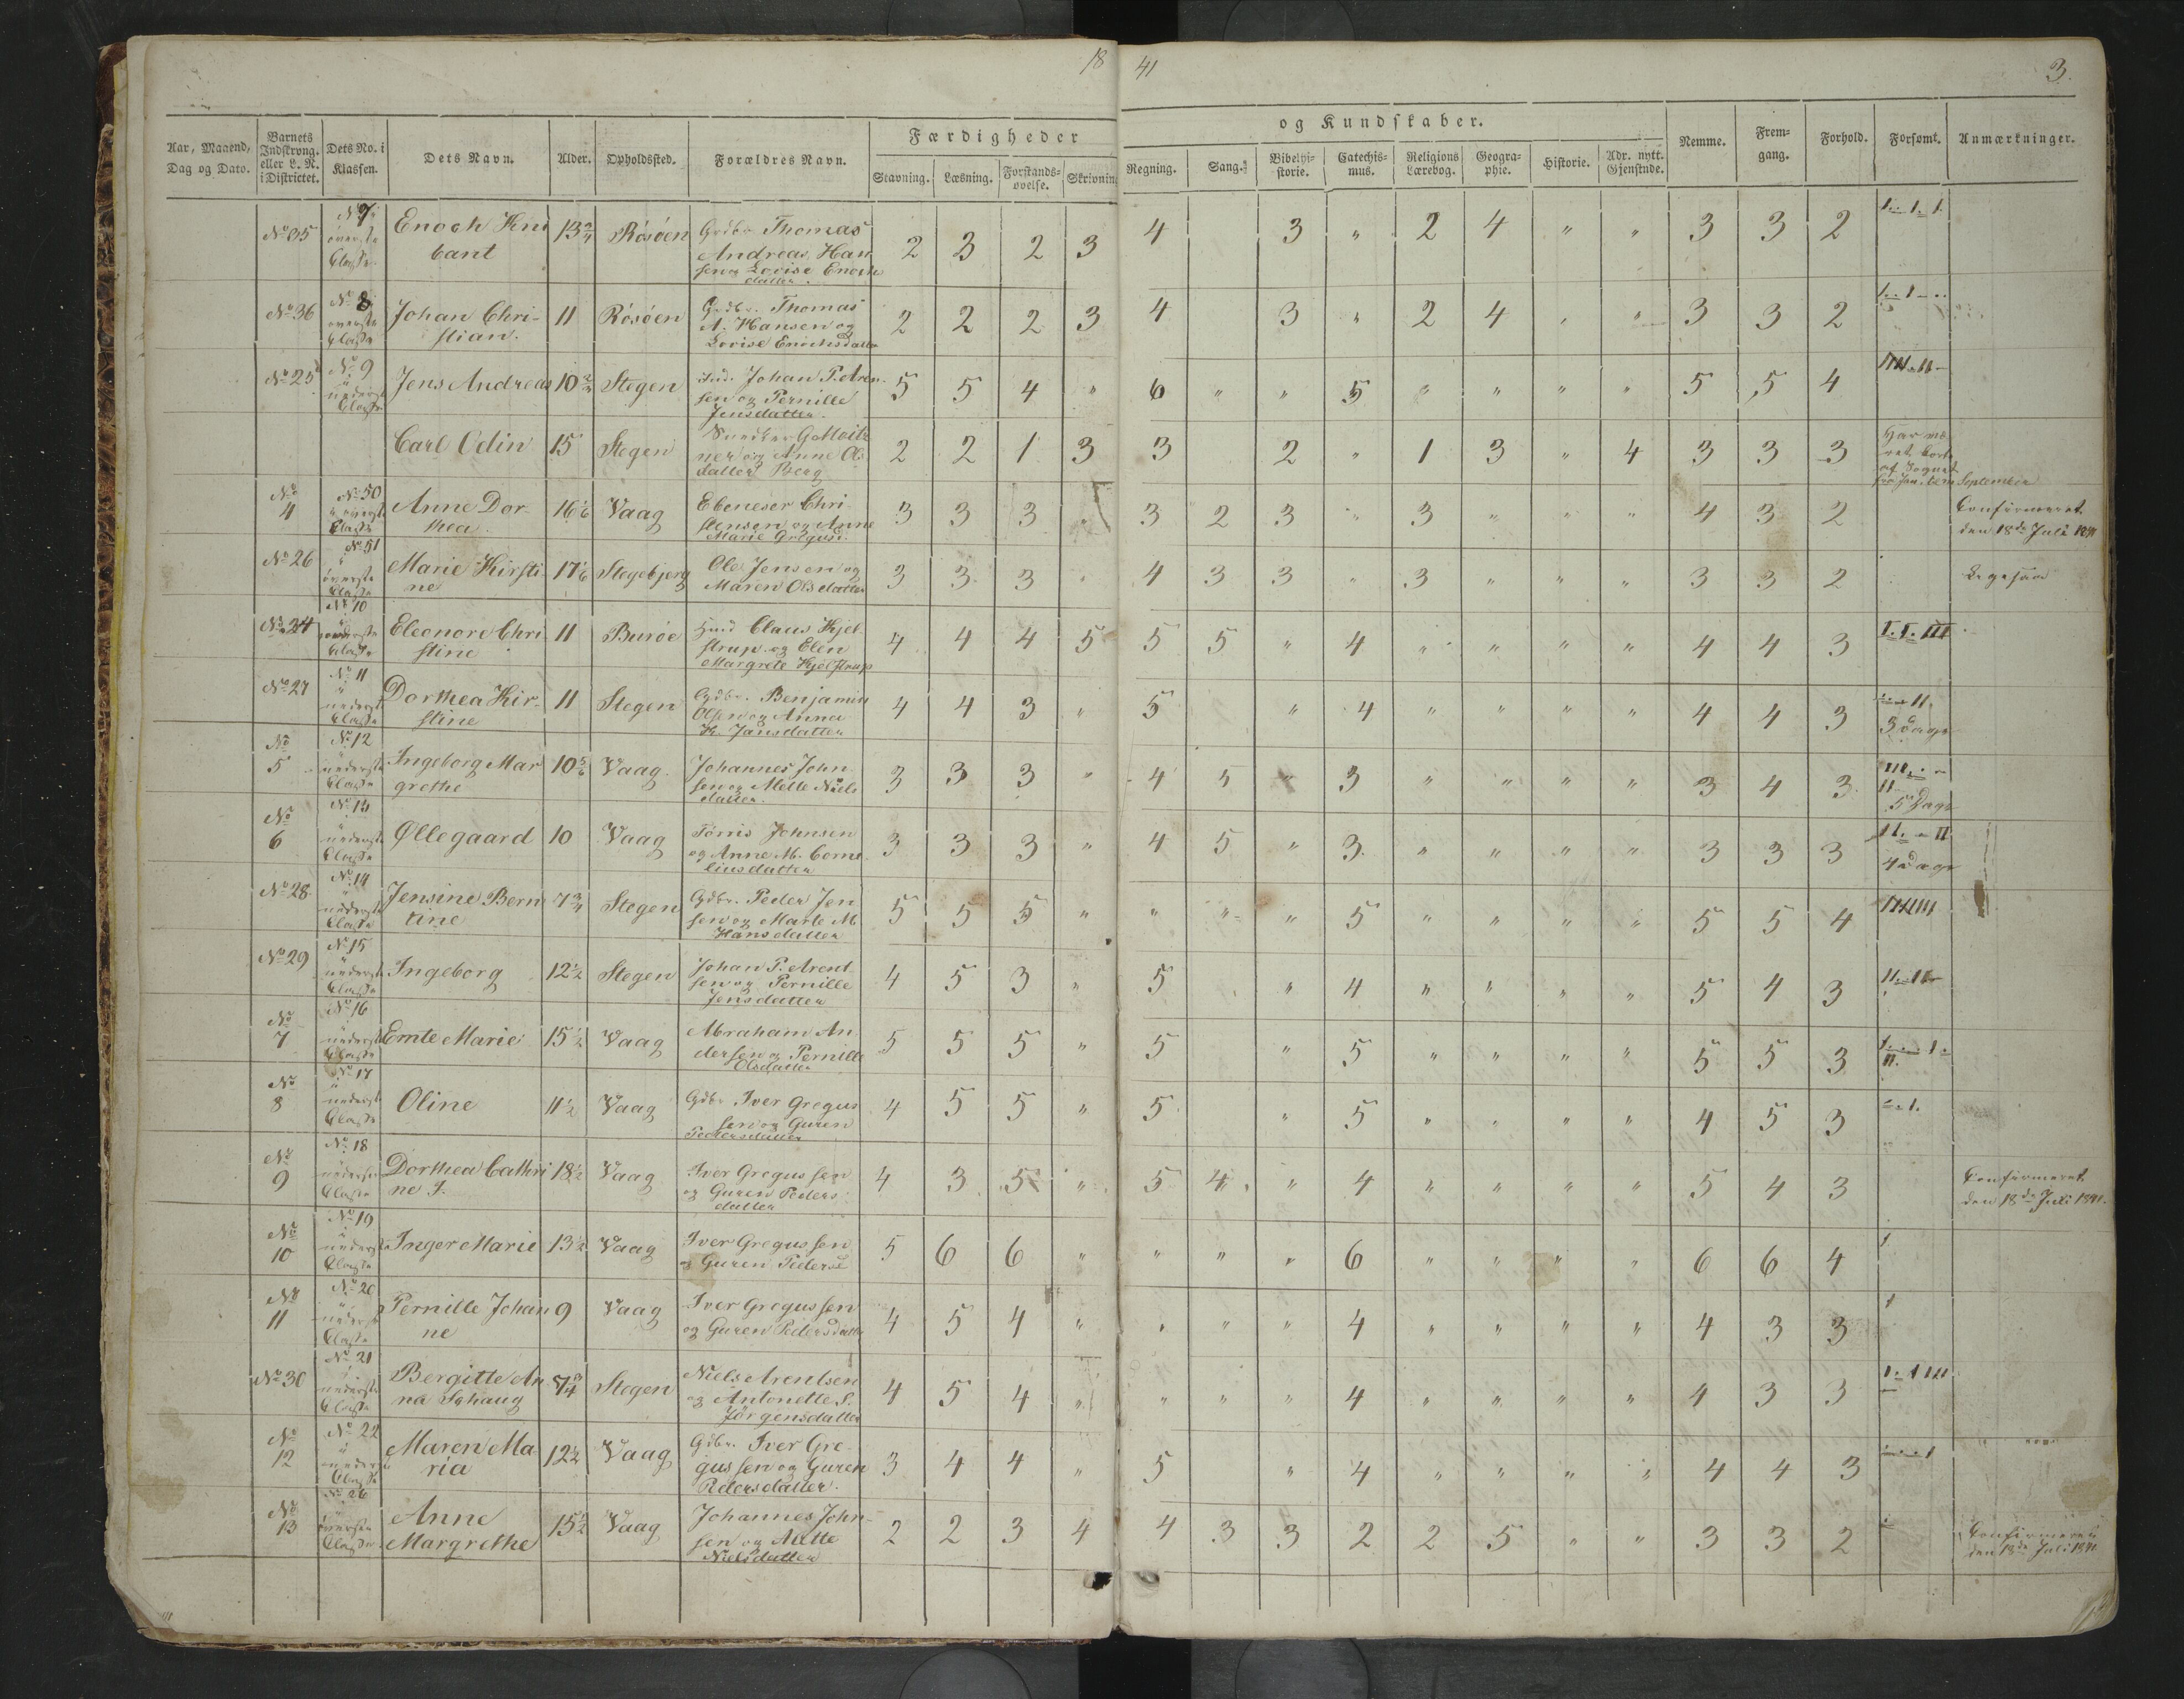 18 41 3.
Færdigheder og Kundskaber.
Aar, Maaned, Dag og Dato. Barnets Indskrvng. eller L. N. i Districtet. Dets No. i Klassen. Dets Navn. Alder. Opholdssted. Forældres Navn. Stavning. Læsning. Forstands-ovelse. Skrivning Regning. Sang. Bibelhi-storie. Catechis-mus. Religions Lærebog. Geogra-phie. Historie. Adr. nytt. Gjenstnde. Nemme. Frem-gang. Forhold. Forsømt. Anmærkninger.
No 35 No 7 øverste Classe Enoch Kni 13 3/4 Røsøen Gdbr. Thomas 2 3 2 3 4 3 " 2 4 " " 3 3 2 1. 1. 1.
bant Andreas Han
sen og Lovise Enochs
datter.
No 36 No 8 øverste Classe Johan Chri- 11 Røsøen Gdbr. Thomas 2 2 2 3 4 3 " 2 4 " " 3 3 2
stian. A. Hansen og
Lovise Enochsdatter
No 25 No 9 i nederst Classe Jens Andreas 10 Stegen Ind. Johan P. Aren 5 5 4 " 6 " " 5 " " " " 5 5 4
sen og Pernille
Jensdatter.
Carl Odin 15 Stegen G. Moitz 2 2 1 3 3 2 " 1 3 " 4 3 3 3 Har væ
ner og Anne Ols ret borte
datter Berg af Sognet
fra Jan. til September
No 4 No 50 i øverst Classe Anne Dor- 16 1/6 Vaag Ebeneser Chri- 3 3 3 " 3 2 3 " 3 " " " 4 3 2 Confirmeret
thea. stensen og Anne den 18de Juli 1841
Marie Gregusd.
No 26 No 51 i øverste Classe Marie Kirsti 17 1/6 Stegebjerg Ole Jensen og 3 3 3 " 4 3 3 " 3 " " " 3 3 2 Ligesaa
ne Maren Olsdatter
No 34 No 10 Classe Eleonore Chri 11 Burøe Claus Kjel- 4 4 4 5 5 5 " 4 " " " " 4 4 3 I. I. III
stine strup og Elen
Margrete Kjelstrup
No 27 No 11 i nederst Classe Dorthea Kir- 11 Stegen Gdbr. Benjamin 4 4 3 " 5 " 4 " " " " 4 4 3 11.
stine Olsen og Anna 3 Dage
K. Jansdatter
No 5 No 12 nederste Classe Ingeborg Mar 10 5/6 Vaag. Johannes John 3 3 3 " 4 5 " 3 " " " " 3 4 3.
grethe sen og Mette Niels 5 Dage
datter.
No 6 No 13 i nederste Classe Øllegaard 10 Vaag Tørris Johnsen 3 3 3 " 4 5 " 3. " " " " 3 3 3
og Anne M. Corne- 4 Dage
liusdatter
No 28 No 14 i nederste Classe Jensine Bern 7 3/4 Stegen Gdbr. Peder Jen 5 5 5 " " " " 5 " " " " 5 5 4
tine sen og Marte M.
Hansdatter
No 29 No 15 i nederst Classe Ingeborg 12 1/2 Stegen Johan P. Arent 4 5 3 " 5 " 4 " " " " 5 4 3
sen og Pernille
Jensdatter
No 7 No 16 i nederst Classe Emte Marie 15 1/2 Vaag Abraham An 5 5 5 " 5 " 5 " " " " 5 5 3
dersen og Pernille
Olsdatter
No 8 No 17 i nederst Classe Oline 11 1/2 Vaag Gdbr. Iver Gregus 4 5 5 " 5 " 5 " " " " 4 5 3
sen og Guren
Pedersdatter
No 9 No 18 i nederste Classe Dorthea Cathri 18 1/2 Vaag Iver Gregussen 4 3 5 " 5 4 " 4 " " " " 5 4 3 Confirmeret
ne I. og Guren Peders den 18de Juli 1841.
datter
No 10 No 19 i nederste Classe Inger Marie 13 1/2 Vaag Iver Gregussen 5 6 6 " " " " 6 " " " " 6 6 4 1
og Guren Pedersd
No 11 No 20 i nederst Classe Pernille Johan 9 Vaag Iver Gregussen 4 5 4 " " " " 4 " " " " 4 3 3 1
ne og Guren Pedersdatter
No 30 No 21 i nederste Classe Bergitte An 7 3/4 Stegen Niels Arentsen 4 5 4 " " " " 4 " " " " 4 3 3
na Schaug og Antonette S.
Jørgensdatter
No 12 No 22 i nederst Classe Maren Ma 12 1/2 Vaag Gdbr. Iver Gre- 3 4 4 " 5 " 4 " " " " 4 4 3
ria gussen og Guren
Pedersdatter.
No 13 No 26 øverste Classe Anne 15 1/2 Vaag Johannes John- 2 2 3 4 4 3 3 2 2 5 " " 3 3 2 Confirmeret
Margrethe sen og Mette den 18de Juli 1841
Nielsdatter